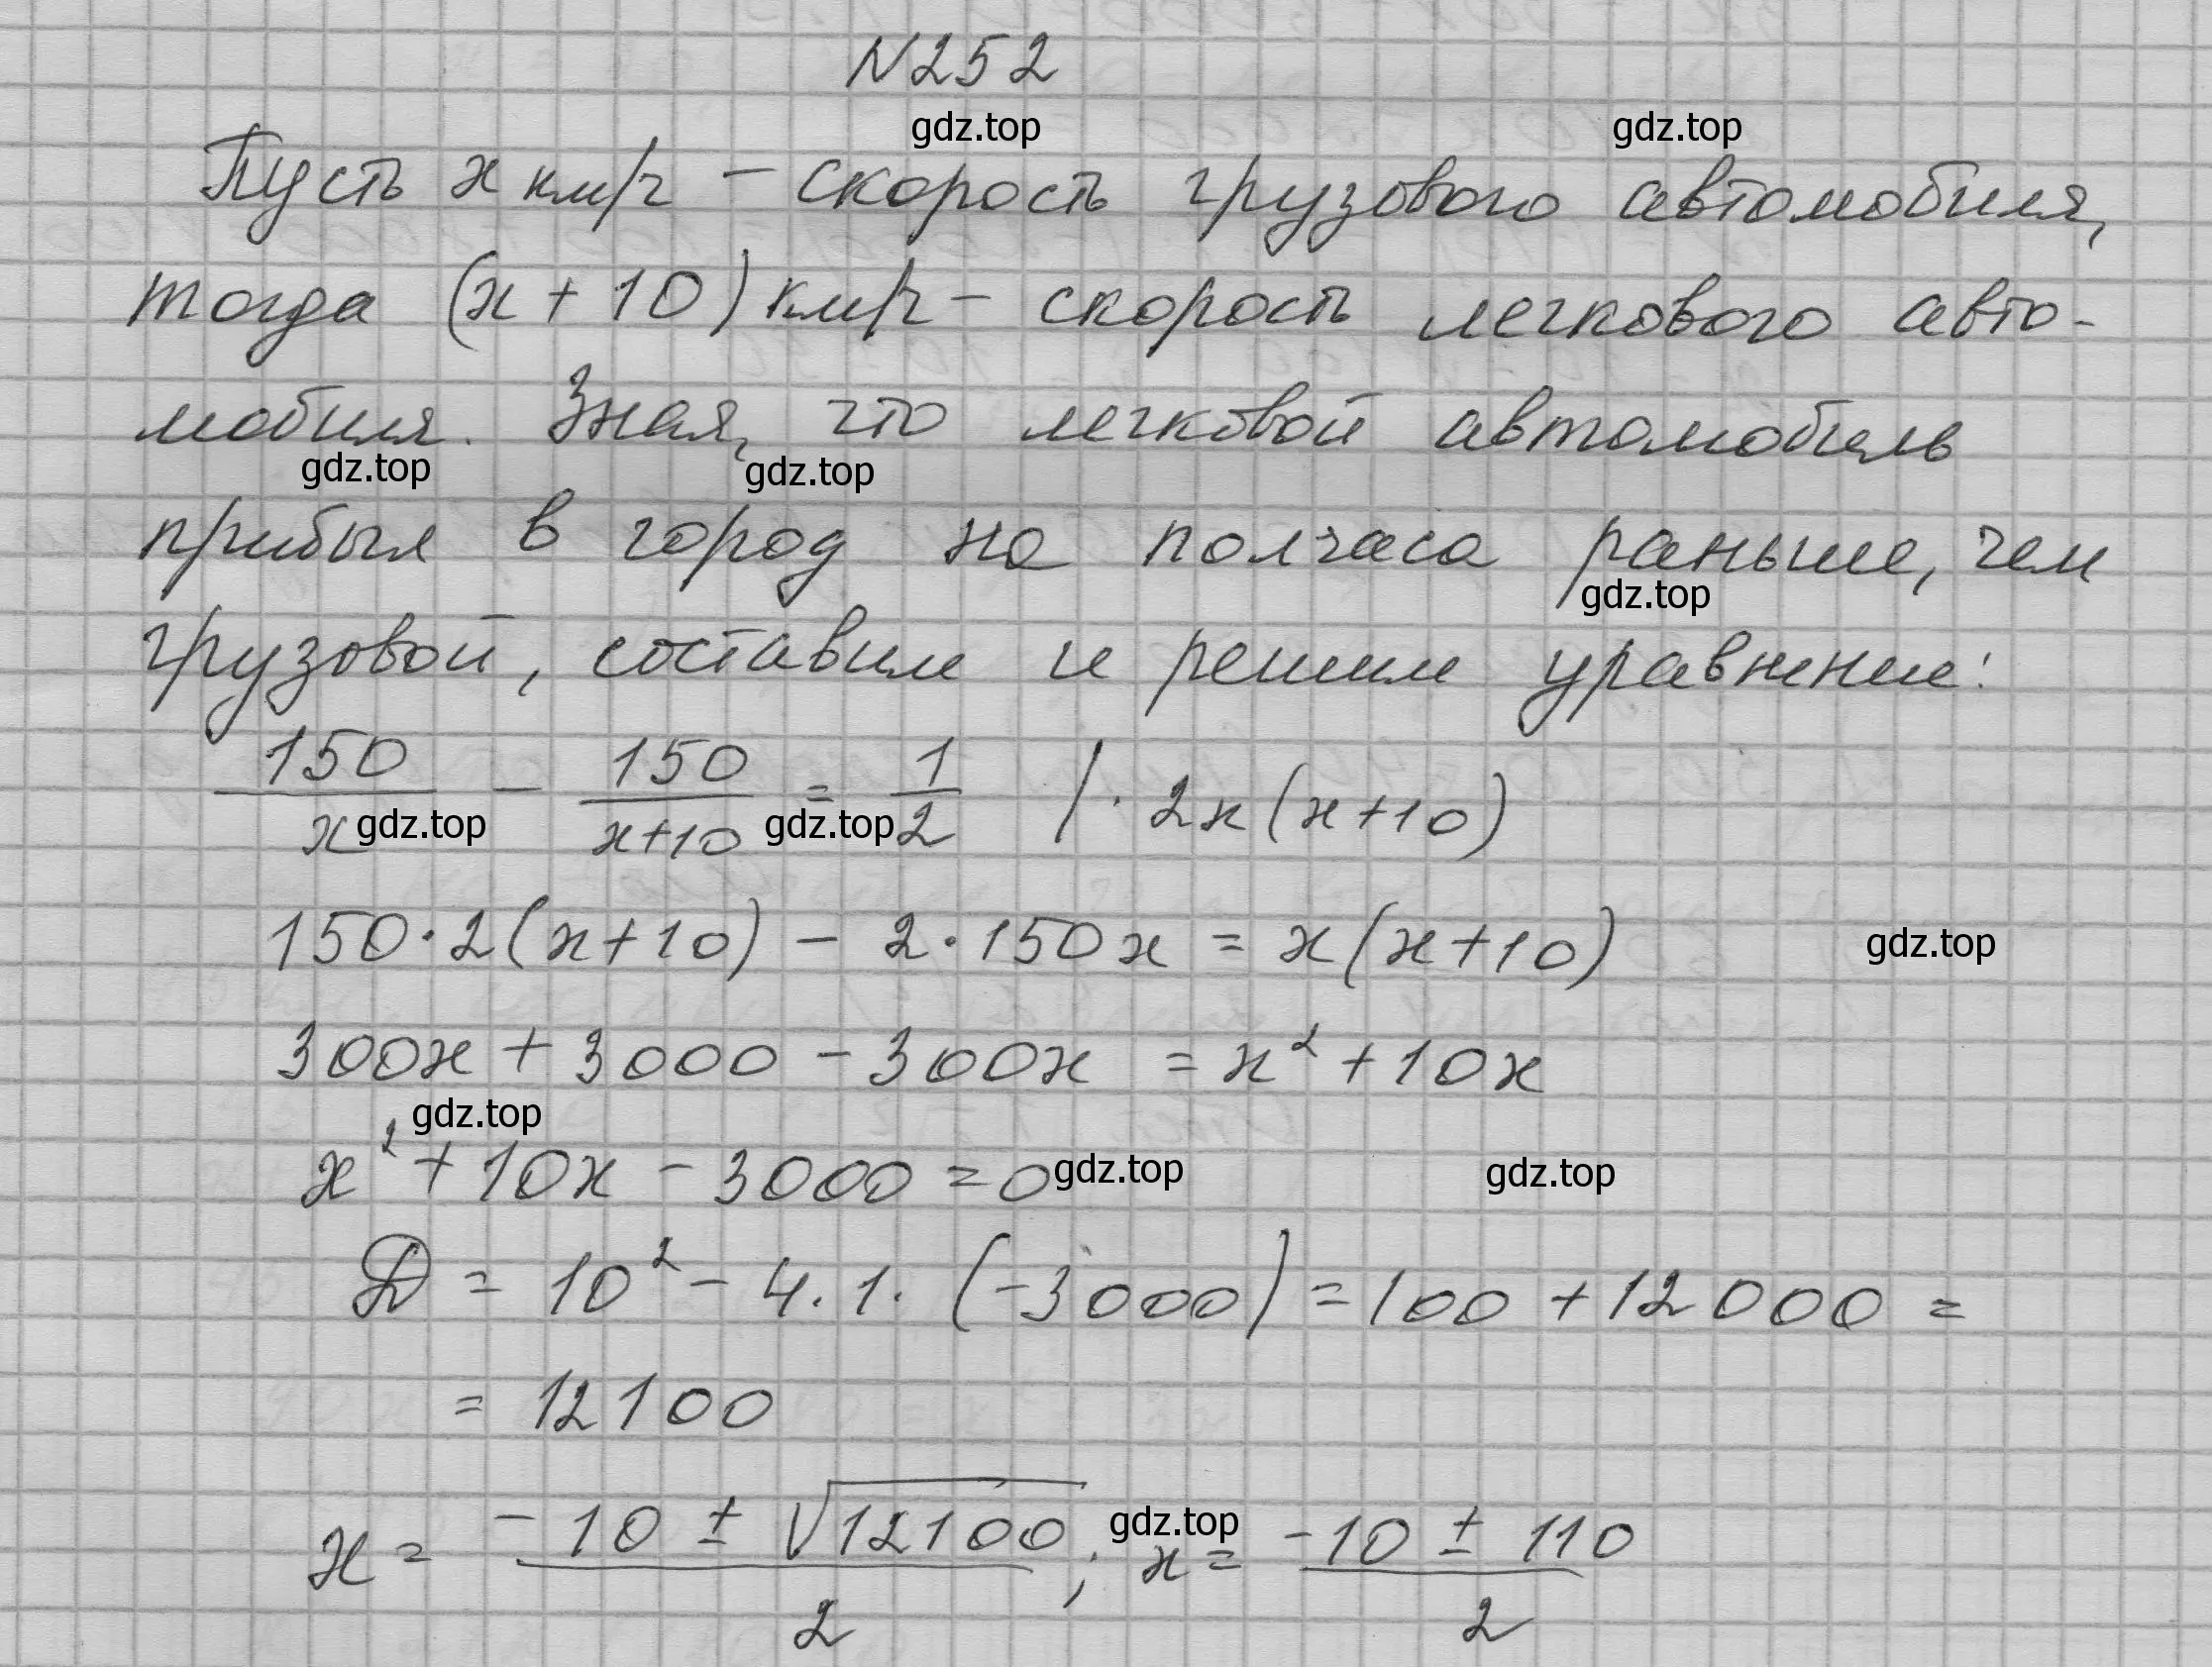 N252
gdz.top gdz.top
Пусть x км/ч – скорость грузового автомобиля,
тогда (x + 10) км/ч – скорость легкового авто-
мобиля. Зная, что легковой автомобиль
gdz.top gdz.top
прибыл в город на полчаса раньше, чем
gdz.top
грузовой, составим и решим уравнение:
150/x - 150/(x+10) = 1/2 | · 2x(x+10)
gdz.top gdz.top
150·2(x+10) - 2·150x = x(x+10)
gdz.top
300x + 3000 - 300x = x² + 10x
gdz.top
x² + 10x - 3000 = 0
gdz.top gdz.top
D = 10² - 4·1·(-3000) = 100 + 12000 =
= 12100
x = (-10 ± √12100)/2; x = (-10 ± 110)/2
gdz.top